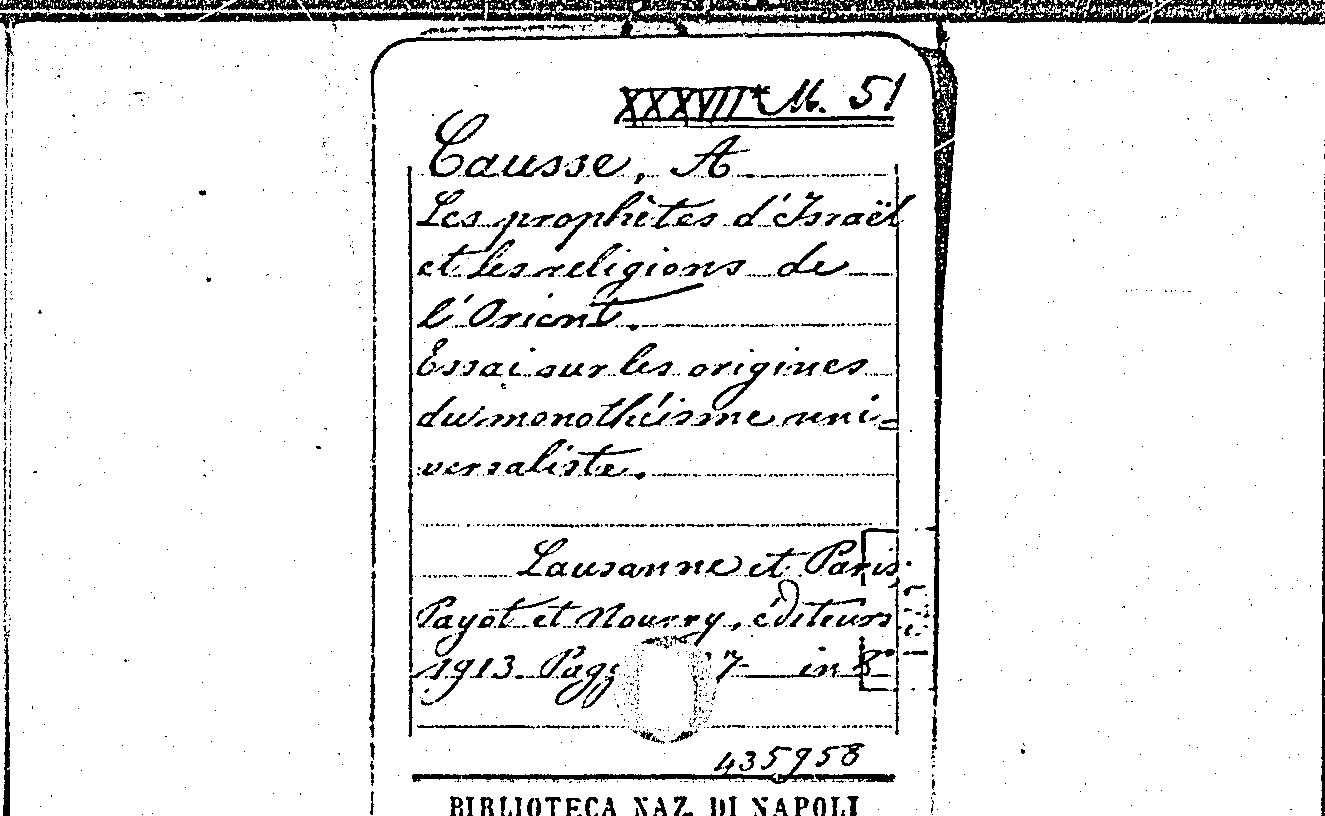 XXXVII* M. 51
Causse, A.
Les prophètes d'Israël
et les religions de
l'Orient.
Essai sur les origines
du monothéisme uni-
versaliste.
Lausanne et Paris,
Payot et Nourry, éditeurs
1913. Pagg 7 in 8°
435958
BIBLIOTECA NAZ. DI NAPOLI